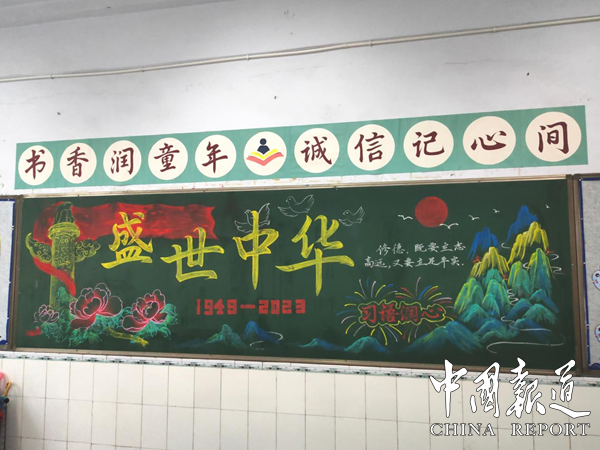 书香润童年 诚信记心间
盛世中华
1949—2023
修德，既要立志
高远，又要立足平实.
习语润心
中国報道
CHINA REPORT